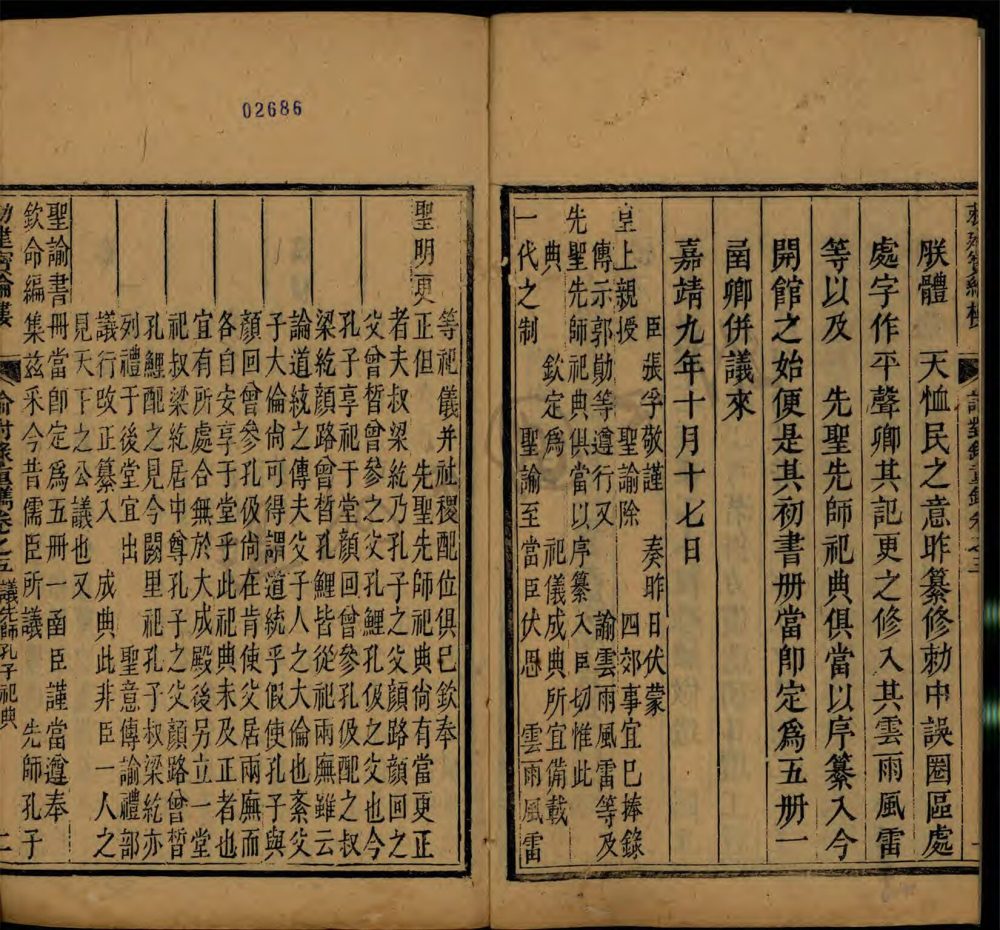 朕體　天恤民之意昨纂修勅中誤圈區處
處字作平聲卿其記更之修入其雲雨風雷
等以及　先聖先師祀典俱當以序纂入今
開館之始便是其初書册當卽定爲五册一
函卿併議來
嘉靖九年十月十七日
臣張孚敬謹　奏昨日伏蒙
皇上親授　聖諭除　四郊事宜已捧錄
傳示郭勛等遵行又　諭雲雨風雷等及
先聖先師祀典俱當以序纂入臣切惟此
典　欽定爲　祀儀成典所宜備載
一代之制　聖諭至當臣伏思　雲雨風雷
02686
等祀儀并社稷配位俱已欽奉
聖明更正但　先聖先師祀典尚有當更正
者夫叔梁紇乃孔子之父顏路顏回之
父曾晳曾參之父孔鯉孔伋之父也今
孔子享祀于堂顏回曾參孔伋配之叔
梁紇顏路曾晳孔鯉皆從祀兩廡雖云
論道統之傳夫父子人之大倫也紊父
子大倫尚可得謂道統乎假使孔子與
顏回曾參孔伋尚在肯使父居兩廡而
各自安享于堂乎此祀典未及正者也
宜有所處合無於大成殿後另立一堂
祀叔梁紇居中尊孔子之父顏路曾晳
孔鯉配之見今闕里祀孔子叔梁紇亦
列禮于後堂宜出　聖意傳諭禮部
議行改正纂入　成典此非臣一人之
見天下之公議也又
聖諭書冊當卽定爲五册一函臣謹當遵奉
欽命編集兹采今昔儒臣所議　先師孔子
建寶綸樓　諭對錄重鐫卷之五　議先師孔子祀典　二